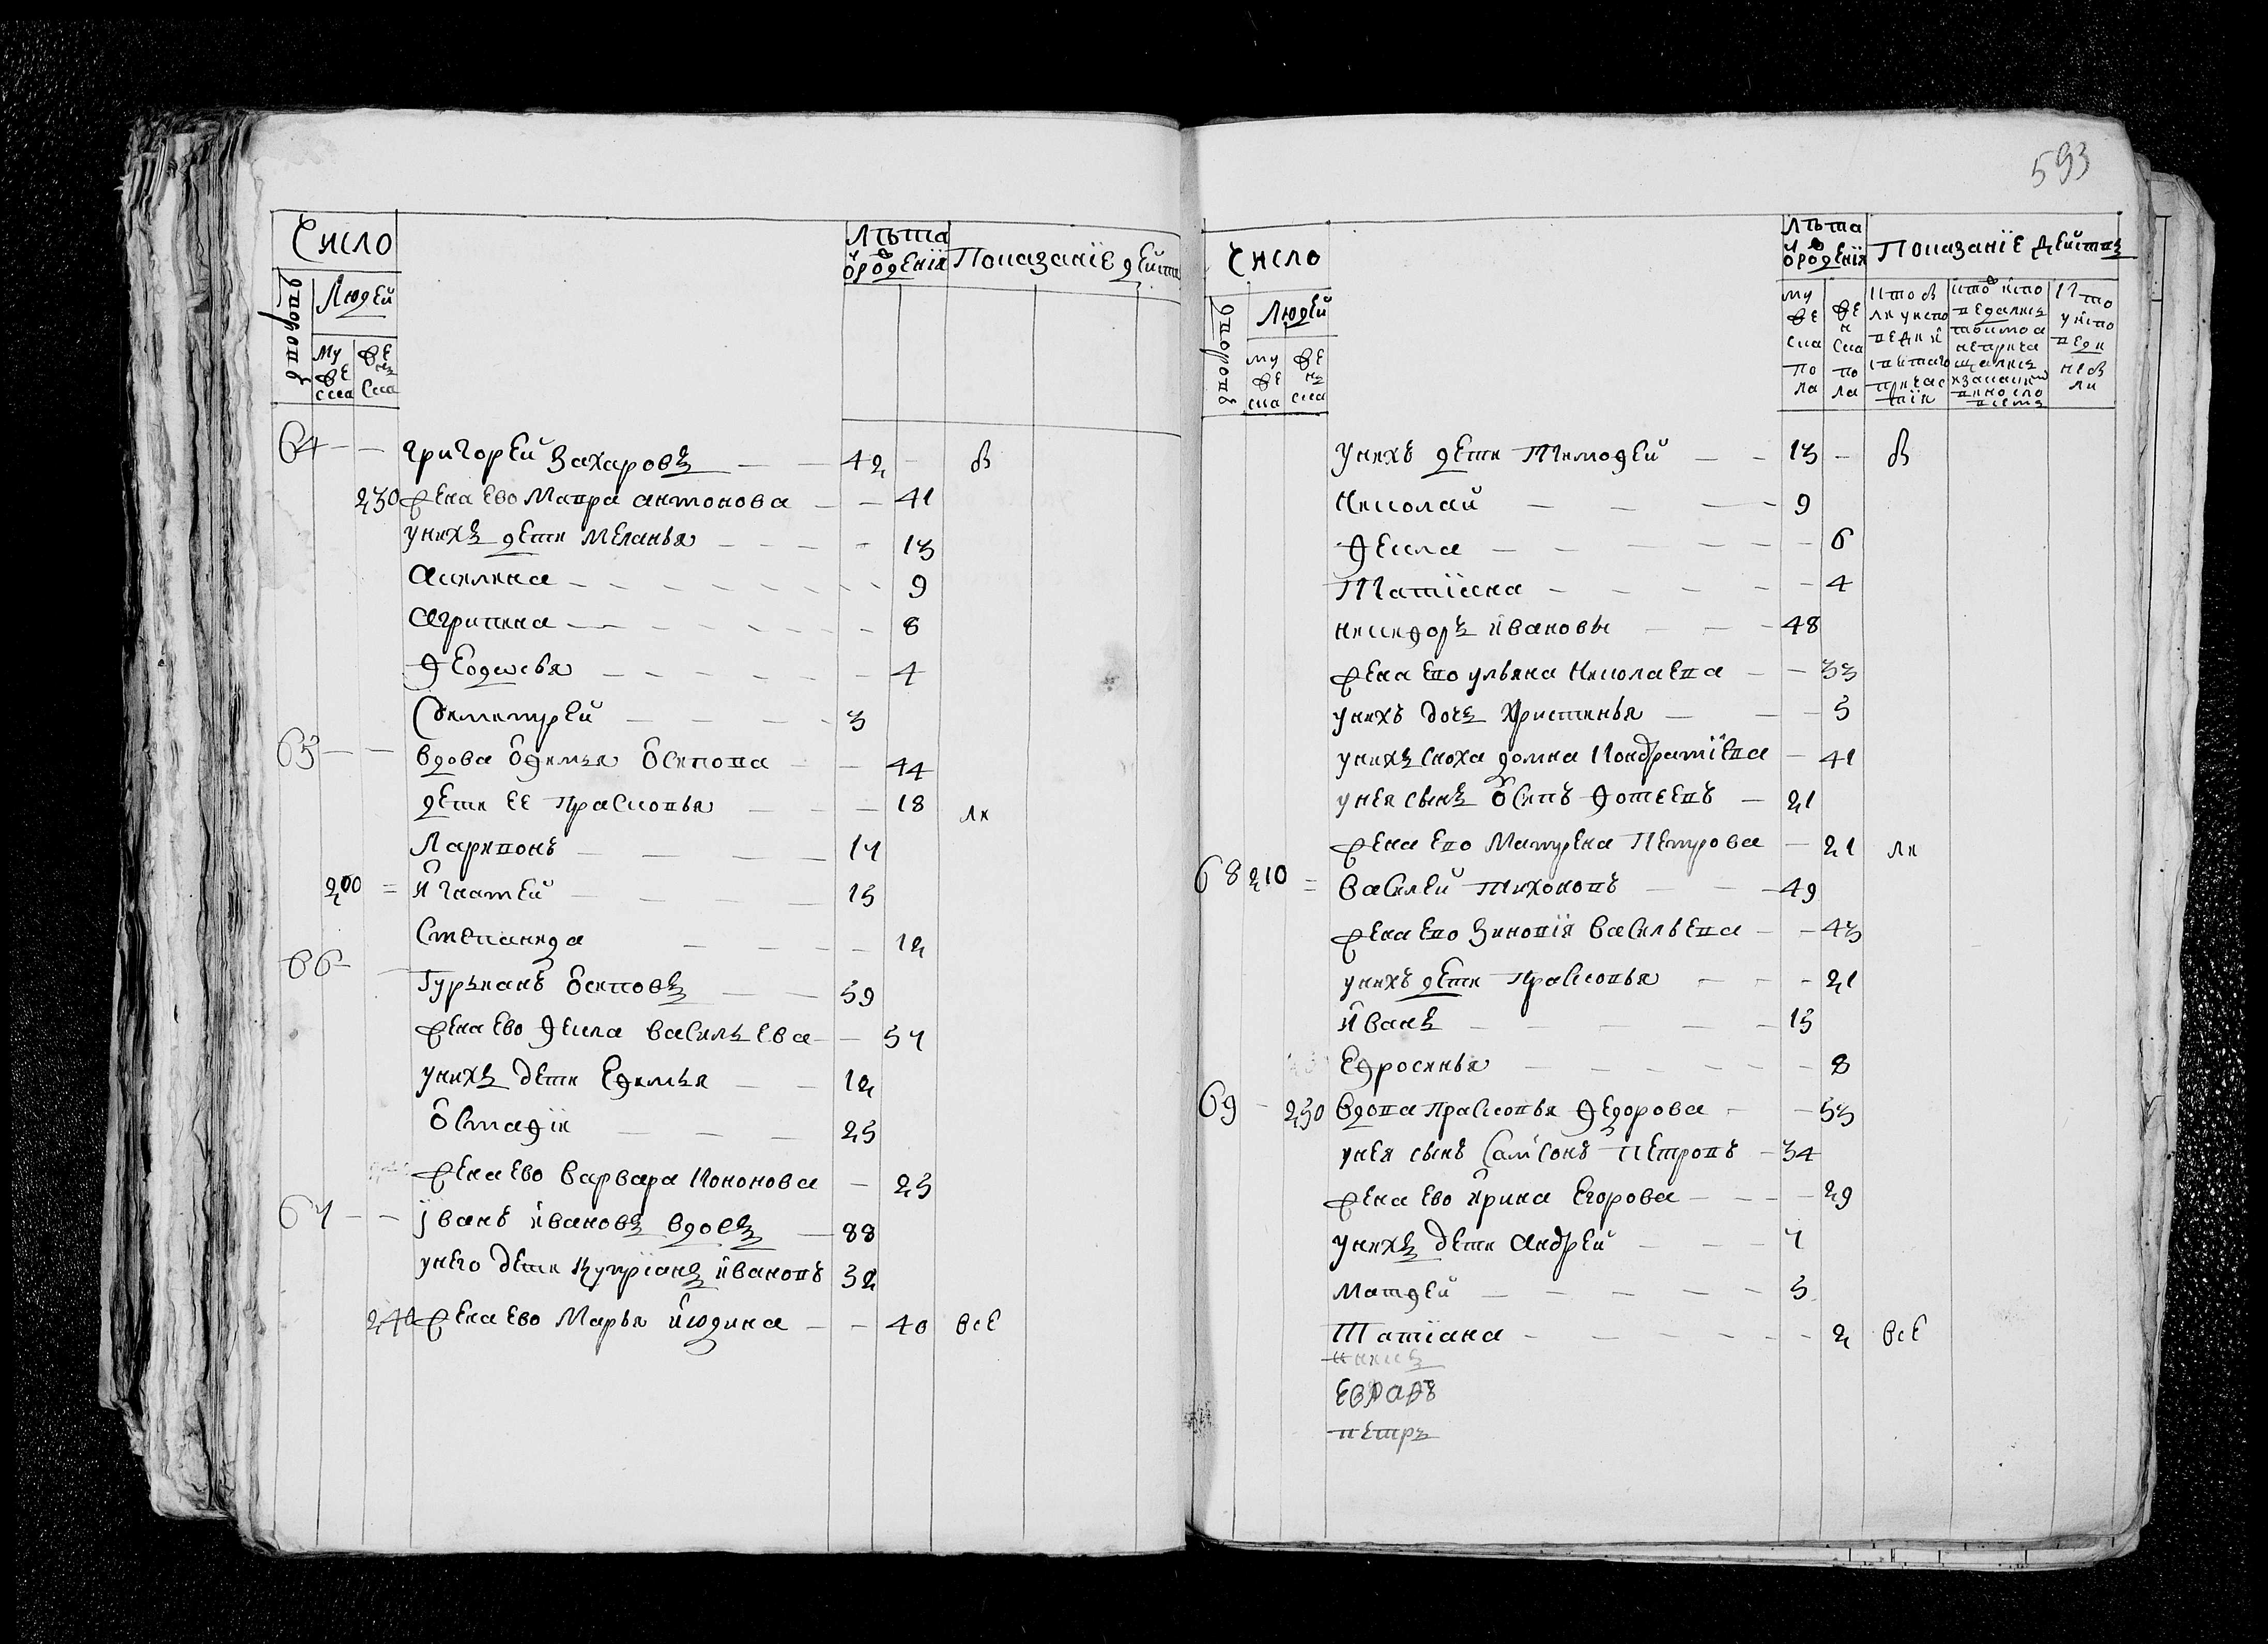 Число
Лѣта
ѿ рождения
Показание дейст
дворовъ
Людей
му
же
ска
же
нъ
ска
64 — — григорей Захаровъ — — 42 — б
230 жена ево Мавра антонова — — 41
у нихъ дети Меланья — — — 13
Акилина — 9
Агрипина — 8
Ѳеодосья — 4
Димитрей — 3
65 — — вдова Офимья Осипова — — 44
дети ее Прасковья — — 18
ли
Ларивонъ — 14
200 = Игнатей — 15
Степанида — 12
66 — Гурьянъ Осиповъ — — 59
жена ево Ѳекла васильева — — 54
у нихъ дети Ефимья — — 12
Остафiй — 25
жена ево варвара Кононова — 25
67 — — Iванъ ивановъ вдовъ — 88
у него дети Купрiянъ ивановъ 32
240 жена ево Марья июдина — — 40 все
593
Число
Лѣта
ѿ рождения
Показанiе действъ
дворовъ
Людей
му
же
ска
же
нъ
ска
му
же
ска
по
ла
же
н
ска
по
ла
у нихъ дети Тимофей — — 13 — б
Николай — 9
Ѳекла — 6
Татiана — 4
никифоръ ивановъ — 48
жена ево ульяна Николаева — — 33
у нихъ дочь Христинья — — 5
у нихъ сноха домна Кондратiева — 41
у нея сынъ Осипъ Фотеевъ — 21
жена ево Матрена Петрова — 21 ли
68 210 = Василей тихоновъ — 49
жена ево Зиновiя васильева — — 43
у нихъ дети Прасковья — 21
Иванъ — 15
Ефросинья — 8
69 — 250 вдова прасковья Ѳедорова — — 53
у нея сынъ Самсонъ Петровъ — 34
жена ево Ирина Егорова — 29
у нихъ дети Андрей — 7
Матфей — 5
Татiана — 2 все
петръ